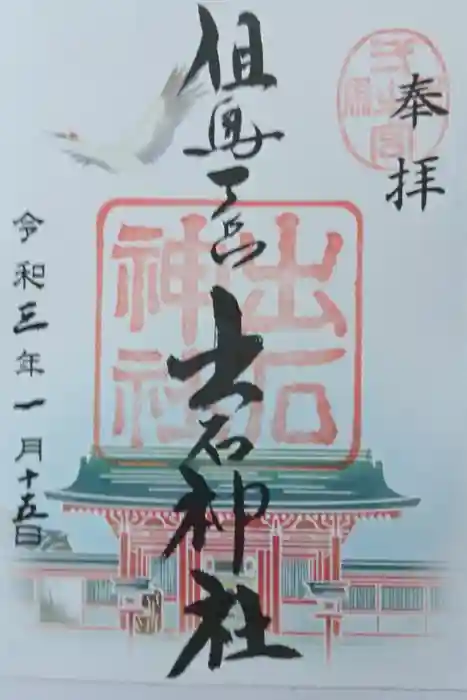 奉拝
但馬一宮 出石神社
出石
神社
令和三年一月十五日